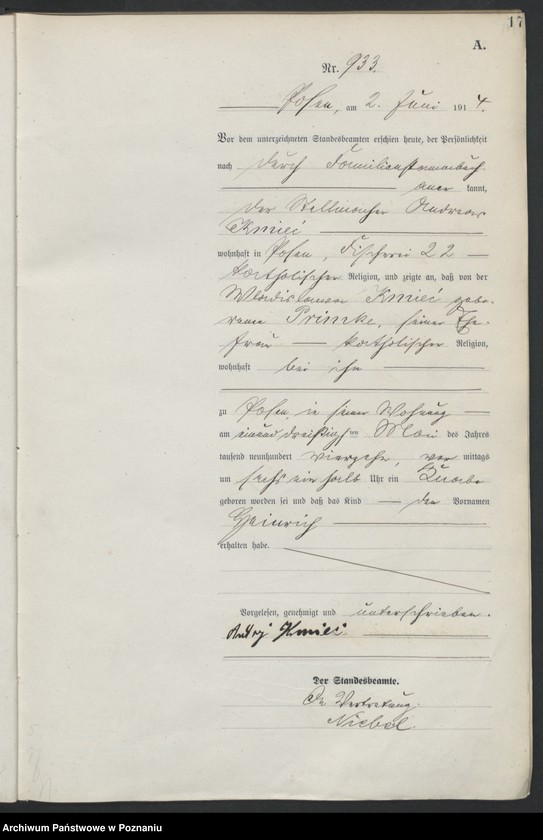 17
A.
Nr. 933.
Posen, am 2. Juni 1914.
Vor dem unterzeichneten Standesbeamten erschien heute, der Persönlichkeit
nach durch Familienstammbuch
aner kannt,
der Stellmacher Andreas
Kmieć
wohnhaft in Posen, Fischerei 22
katholischer Religion, und zeigte an, daß von der
Wladislawa Kmieć gebo-
renen Primke, seiner Ehe-
frau katholischer Religion,
wohnhaft bei ihm
zu Posen in seiner Wohnung
am einunddreißigsten Mai des Jahres
tausend neunhundert vierzehn, vor mittags
um sechs ein halb Uhr ein Knabe
geboren worden sei und daß das Kind den Vornamen
Heinrich
erhalten habe.
Vorgelesen, genehmigt und unterschrieben.
Andrzej Kmieć
Der Standesbeamte.
In Vertretung.
Niebel.
Archiwum Państwowe w Poznaniu